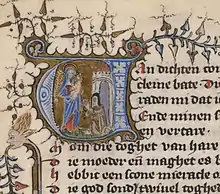 an dichten com
cleine bate. D
raden mi dat i
Ende minen si
en vertar.
om die doghet van hare
ie moeder en maghet es bl
ebbic een scone miracle
ie god sond twiuel togh